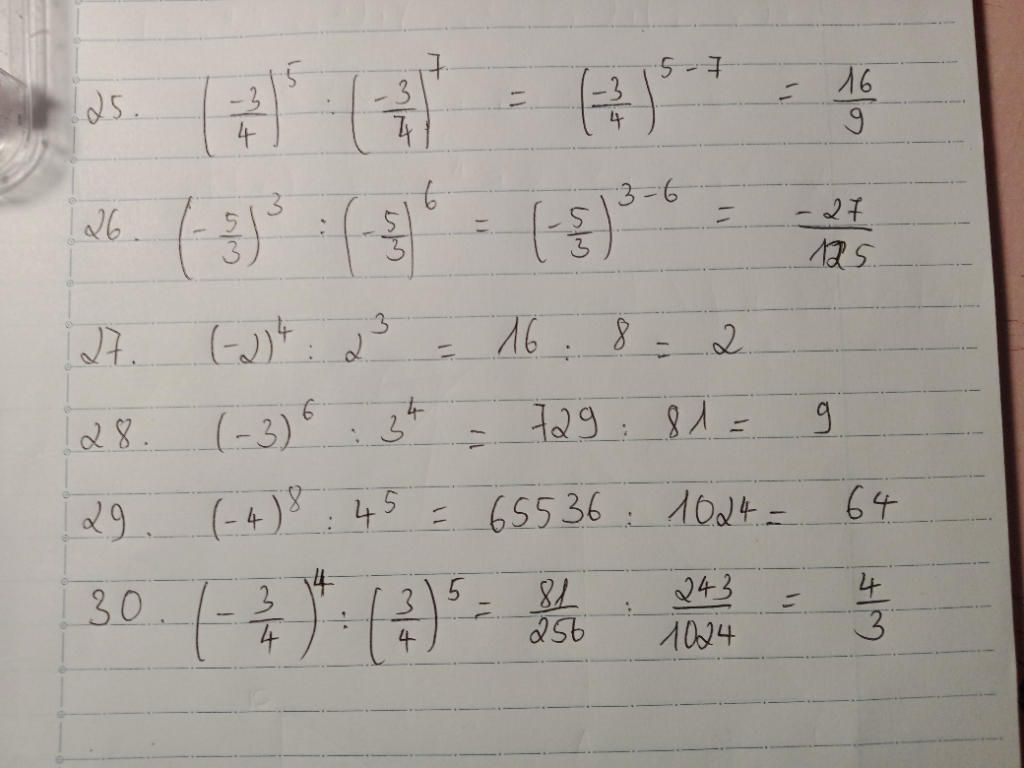 25. (-3/4)^5 : (-3/4)^7 = (-3/4)^5-7 = 16/9
26. (-5/3)^3 : (-5/3)^6 = (-5/3)^3-6 = -27/125
27. (-2)^4 : 2^3 = 16 : 8 = 2
28. (-3)^6 : 3^4 = 729 : 81 = 9
29. (-4)^8 : 4^5 = 65536 : 1024 = 64
30. (-3/4)^4 : (3/4)^5 = 81/256 : 243/1024 = 4/3